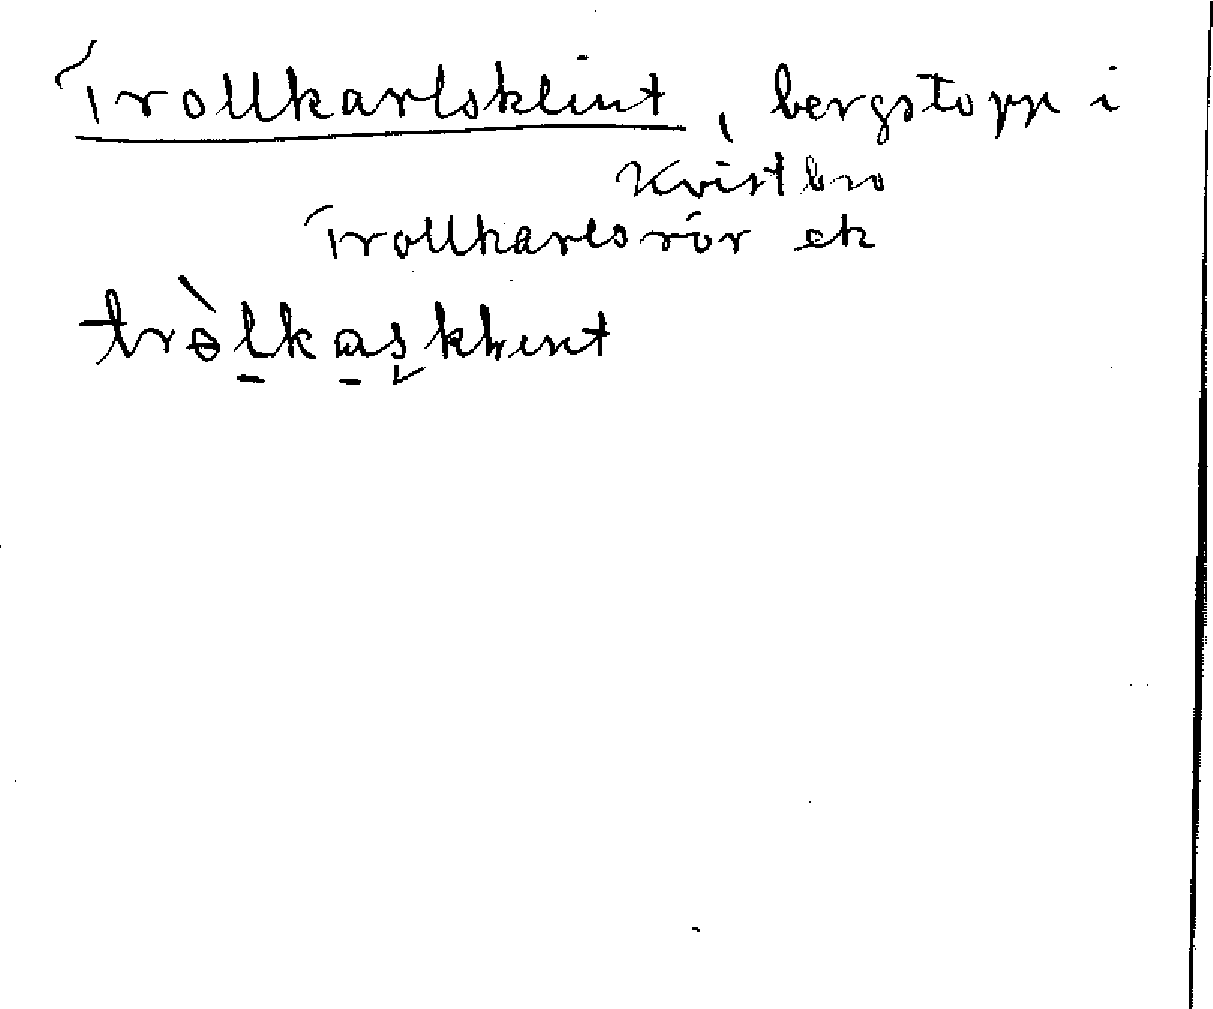 Trollkarlsklint, bergstopp i
Kvistbro
Trollkarlsrör ek
trɵ̀lkasklint